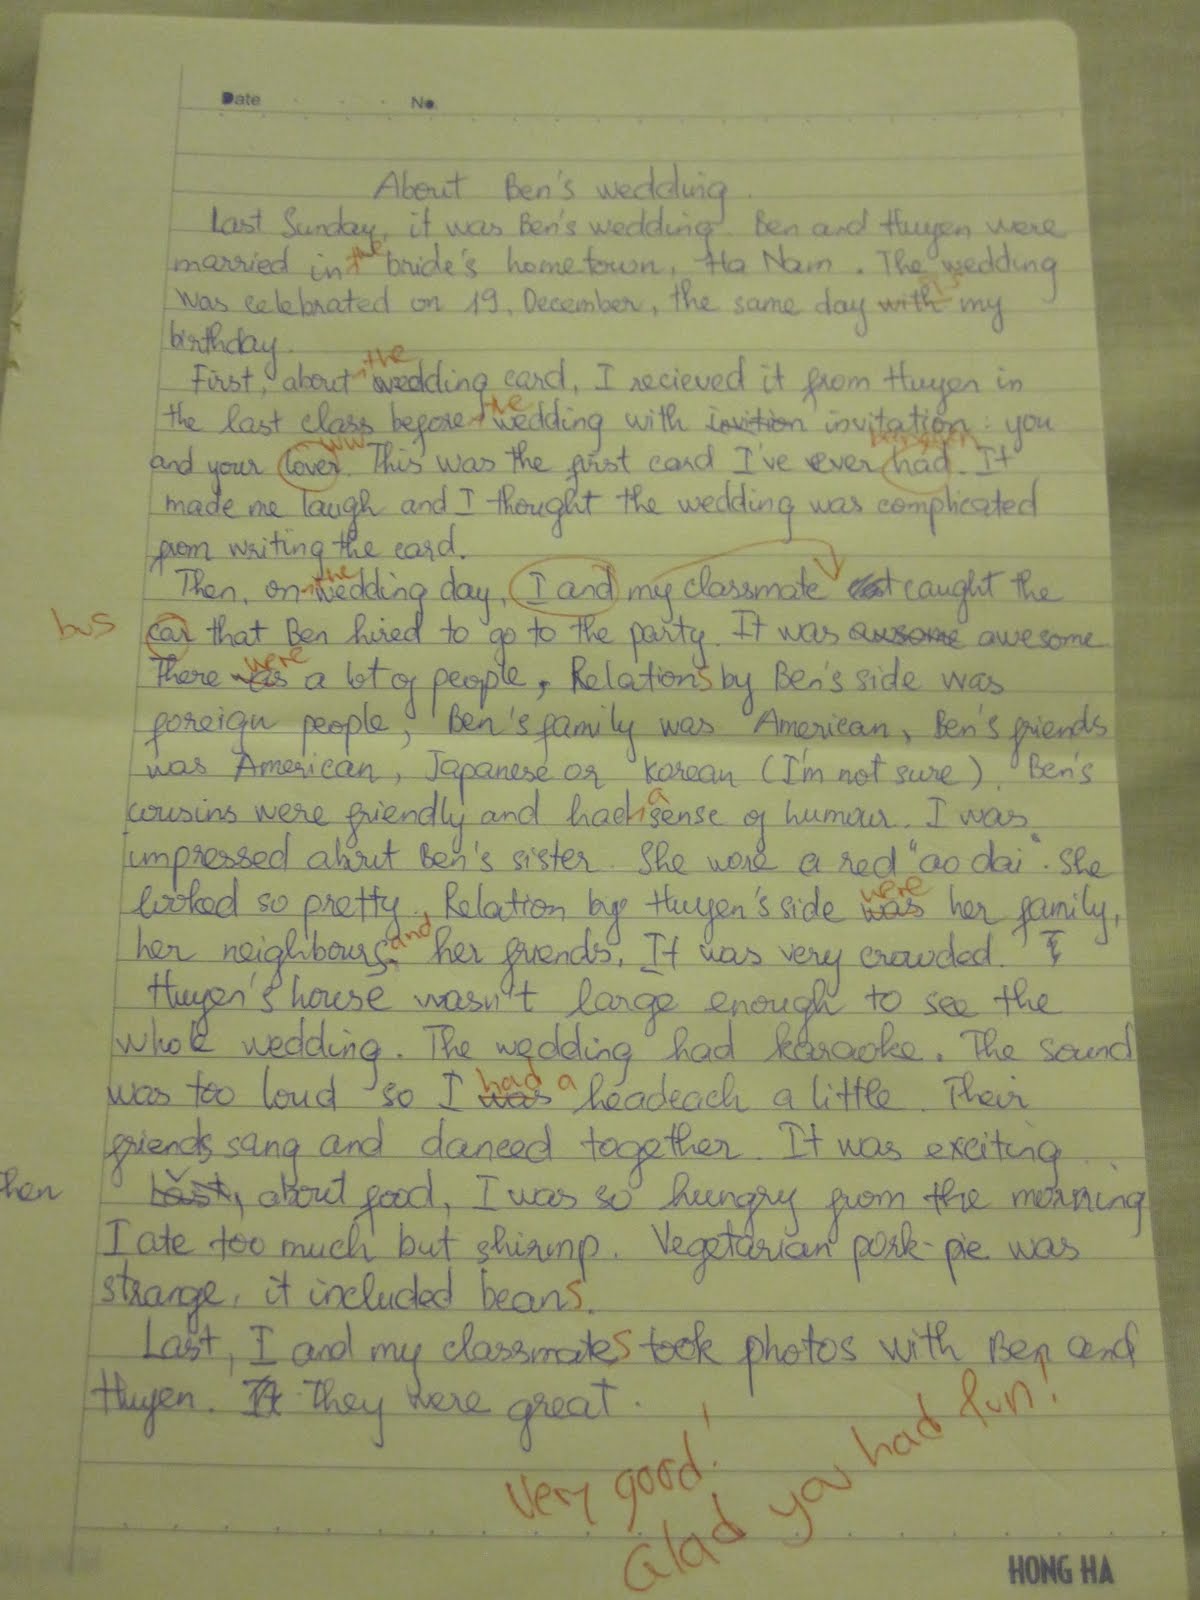 Date No.
About Ben's wedding.
Last Sunday, it was Ben's wedding. Ben and Huyen were
married in the bride's hometown, Ha Nam. The wedding
was celebrated on 19, December, the same day with as my
birthday.
First, about the wedding card, I recieved it from Huyen in
the last class before the wedding with invition invitation: you
and your lover. This was the first card I've ever had. It
made me laugh and I thought the wedding was complicated
from writing the card.
Then, on the wedding day, I and my classmate caught the
bus car that Ben hired to go to the party. It was awsome awesome
There was were a lot of people, Relations by Ben's side was
foreign people, Ben's family was American, Ben's friends
was American, Japanese or Korean (I'm not sure). Ben's
cousins were friendly and had a sense of humour. I was
impressed about Ben's sister. She wore a red "ao dai". She
looked so pretty, Relation by Huyen's side was were her family,
her neighbours and her friends. It was very crowded. I
Huyen's house wasn't large enough to see the
whole wedding. The wedding had karaoke. The sound
was too loud so I was had a headeach a little. Their
friends sang and danced together. It was exciting
then Last, about food, I was so hungry from the morning
I ate too much but shirmp. Vegetarian pork-pie was
strange, it included beans.
Last, I and my classmates took photos with Ben and
Huyen. It They were great.
Very good!
Glad you had fun!
HONG HA